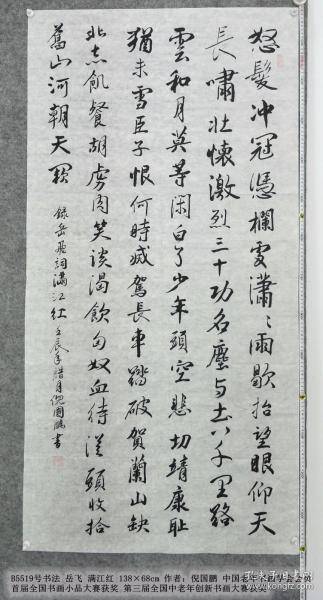 怒髮冲冠憑欄處瀟瀟雨歇抬望眼仰天
長嘯壯懷激烈三十功名塵与土八千里路
雲和月莫等闲白了少年頭空悲切靖康耻
猶未雪臣子恨何時滅駕長車踏破賀蘭山缺
壯志飢餐胡虜肉笑談渴飲匈奴血待從頭收拾
舊山河朝天闕
錄岳飛詞滿江红 壬辰年腊月倪國鵬書
B5519号书法 岳飞 满江红 138×68cm 作者：倪国鹏 中国老年书画学会会员
首届全国书画小品大赛获奖 第三届全国中老年创新书画大赛获奖